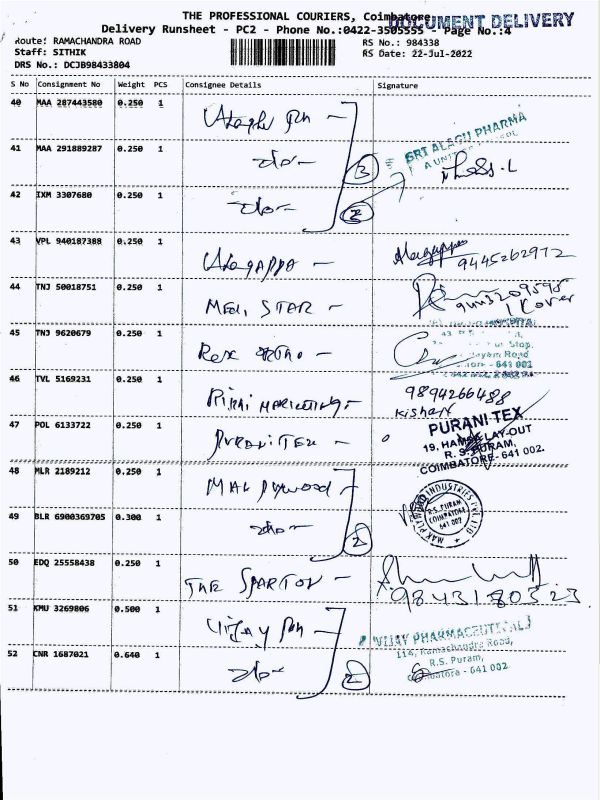 THE PROFESSIONAL COURIERS, Coimbatore
DOCUMENT DELIVERY
Delivery Runsheet - PC2 - Phone No.:0422-3505555 - Page No.:4
Route: RAMACHANDRA ROAD
RS No.: 984338
Staff: SITHIK
RS Date: 22-Jul-2022
DRS No.: DCJB98433804
S No Consignment No Weight PCS Consignee Details Signature
40 MAA 287443580 0.250 1
41 MAA 291889287 0.250 1
3
SRI ALAGU PHARMA
42 IXM 3307680 0.250 1
43 VPL 940187388 0.250 1 Alagappa
Alagappa
9445262972
44 TNJ 50018751 0.250 1 Medi STAR -
9443209595
1 Cover
45 TNJ 9620679 0.250 1 Rex Ortho -
641 002
46 TVL 5169231 0.250 1 Pirai Marketing -
9894266488
Kishan
47 POL 6133722 0.250 1 PURANI TEX -
PURANI TEX
LAY-OUT
R. S. PURAM,
COIMBATORE - 641 002.
48 MLR 2189212 0.250 1 MAK Plywood -
MAK PLYWOOD INDUSTRIES PVT LTD
R.S. PURAM
COIMBATORE
641 002
49 BLR 6900369705 0.300 1
2
50 EDQ 25558438 0.250 1 THE SPARTON -
9843180323
51 KMU 3269806 0.500 1 Vijay Ph -
VIJAY PHARMACEUTICAL
114, Ramachandra Road,
R.S. Puram,
Coimbatore - 641 002
52 CNR 1687021 0.640 1
2